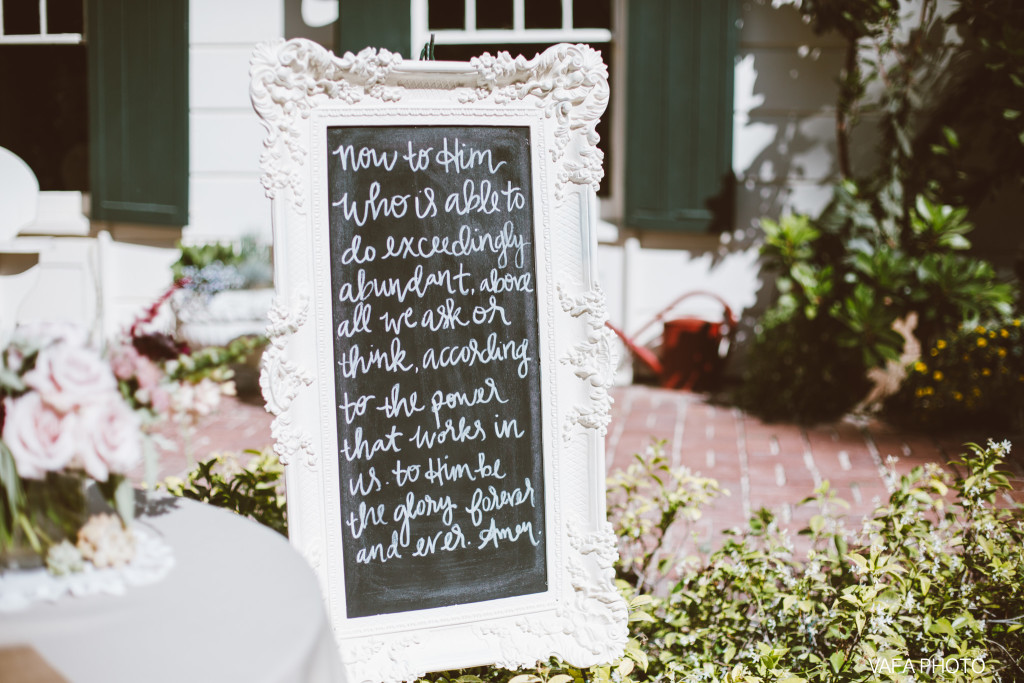 Now to Him
who is able to
do exceedingly
abundant, above
all we ask or
think, according
to the power
that works in
us. to Him be
the glory forever
and ever. Amen.
VAFA PHOTO